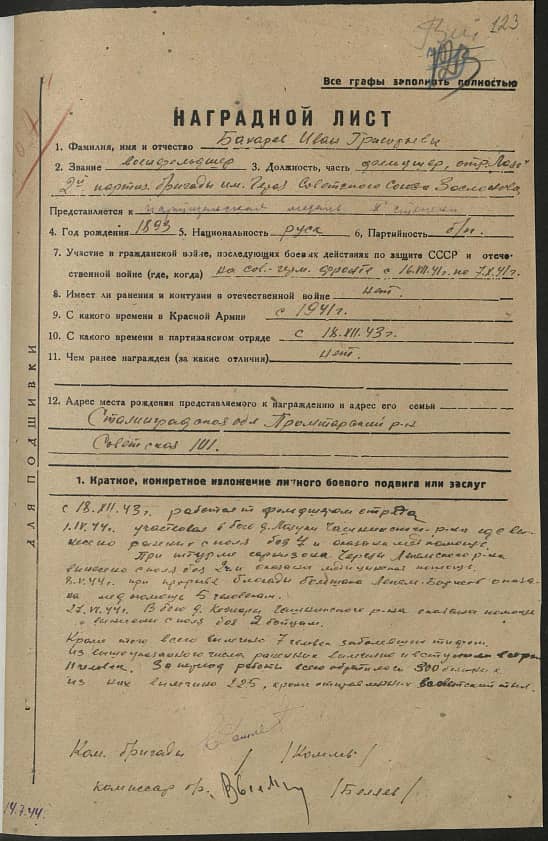 123
Все графы заполнять полностью
НАГРАДНОЙ ЛИСТ
1. Фамилия, имя и отчество Бахарев Иван Григорьевич
2. Звание военфельдшер 3. Должность, часть фельдшер, отр.
2й партиз. бригады им. Героя Советского Союза Заслонова
Представляется к партизанская медаль II степени
4. Год рождения 1893 5. Национальность русс 6. Партийность б/п.
7. Участие в гражданской войне, последующих боевых действиях по защите СССР и отече-
ственной войне (где, когда) на сов.-герм. фронте с 16.VII.41г. по 7.X.41г.
8. Имеет ли ранения и контузии в отечественной войне нет.
9. С какого времени в Красной Армии с 1941г.
10. С какого времени в партизанском отряде с 18.XII.43г.
11. Чем ранее награжден (за какие отличия) нет.
12. Адрес места рождения представляемого к награждению и адрес его семьи
Сталинградская обл р-н
Советская 111.
ДЛЯ ПОДШИВКИ
1. Краткое, конкретное изложение личного боевого подвига или заслуг
с 18.XII.43г. работает фельдшером отряда
1.IV.44г. участвовал в бою д. Чашникского р-на где вы-
несено раненых с поля боя 7 и оказана мед помощь.
При штурме гарнизона Черея р-на
вынесено с поля боя 2 чел и оказана медицинская помощь.
8.V.44г. при прорыве блокады Лепель-Борисов оказа-
на мед помощь 5 человекам.
27.VI.44г. В бою д. Чашникского р-на оказана помощь
и вынесли с поля боя 2 бойцам.
Кроме того всего вылечил 7 человек заболевших тифом.
Из вышеуказанного числа раненых вылечено и вступили в строй
11 человек. За период работы всего обратилось 300 больных
из них вылечено 225, кроме отправленных в советский тыл.
Ком. бригады / /
комиссар бр. /Беляев/
14.7.44.